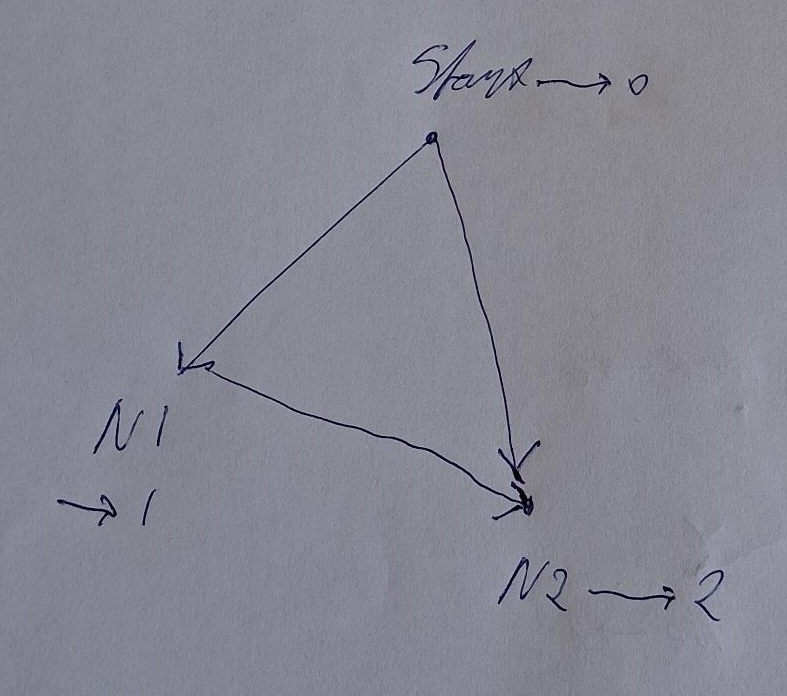 Start → 0
N1
→ 1
N2 → 2